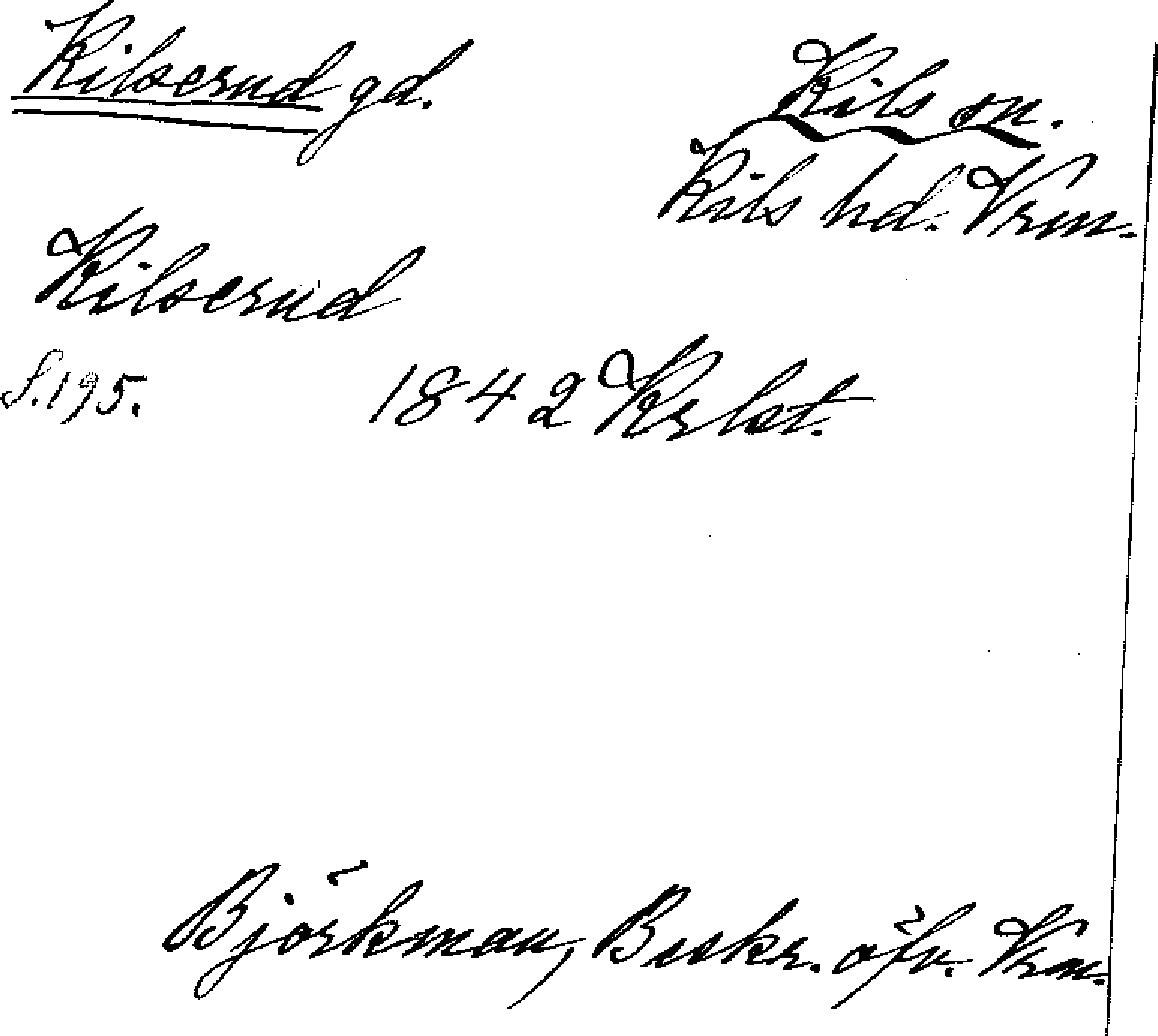 Kilserud gd.
Kils sn.
Kils hd. Vrm.
Kilserud
S.195.
1842 Krlst.
Björkman, Beskr. öfv. Vrm.